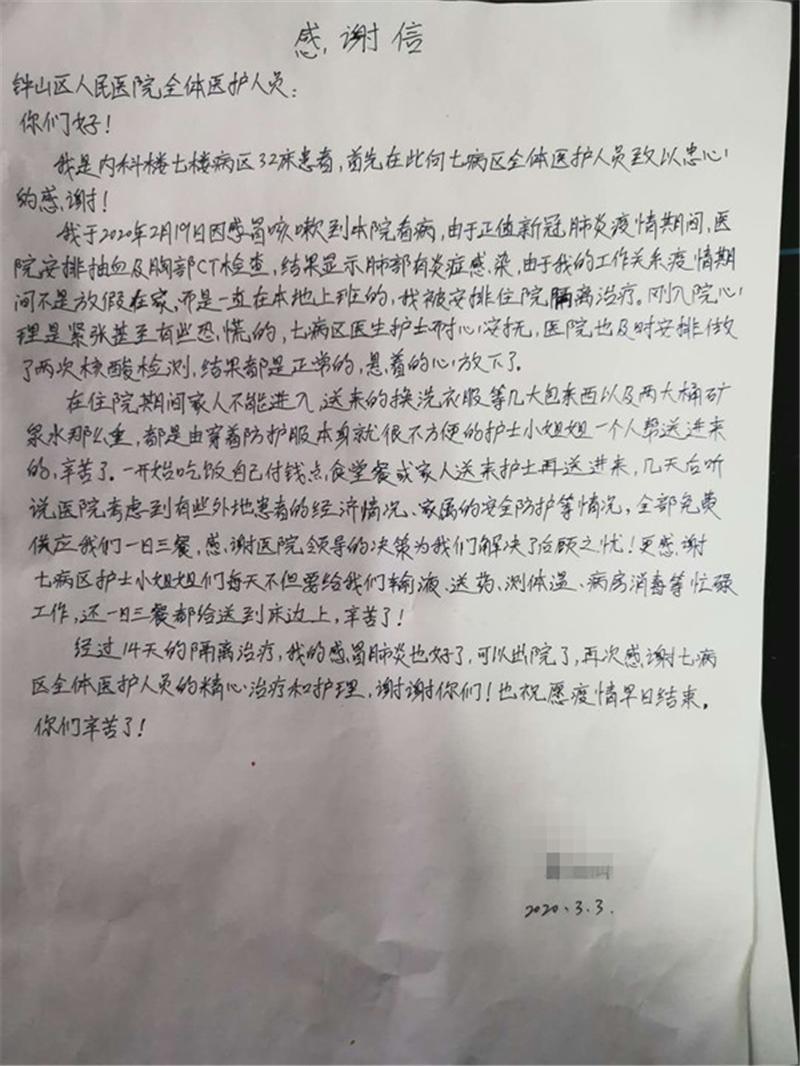 感谢信
钟山区人民医院全体医护人员：
你们好！
我是内科楼七楼病区32床患者，首先在此向七病区全体医护人员致以忠心
的感谢！
我于2020年2月19日因感冒咳嗽到本院看病，由于正值新冠肺炎疫情期间，医
院安排抽血及胸部CT检查，结果显示肺部有炎症感染，由于我的工作关系疫情期
间不是放假在家，而是一直在本地上班的，我被安排住院隔离治疗。刚入院心
理是紧张甚至有些恐慌的，七病区医生护士耐心安抚，医院也及时安排做
了两次核酸检测，结果都是正常的，悬着的心放下了。
在住院期间家人不能进入，送来的换洗衣服等几大包东西以及两大桶矿
泉水那么重，都是由穿着防护服本身就很不方便的护士小姐姐一个人帮送进来
的，辛苦了。一开始吃饭自己付钱点食堂餐或家人送来护士再送进来，几天后听
说医院考虑到有些外地患者的经济情况、家属的安全防护等情况，全部免费
供应我们一日三餐，感谢医院领导的决策为我们解决了后顾之忧！更感谢
七病区护士小姐姐们每天不但要给我们输液、送药、测体温、病房消毒等忙碌
工作，还一日三餐都给送到床边上，辛苦了！
经过14天的隔离治疗，我的感冒肺炎也好了，可以出院了，再次感谢七病
区全体医护人员的精心治疗和护理，谢谢你们！也祝愿疫情早日结束。
你们辛苦了！
2020.3.3.